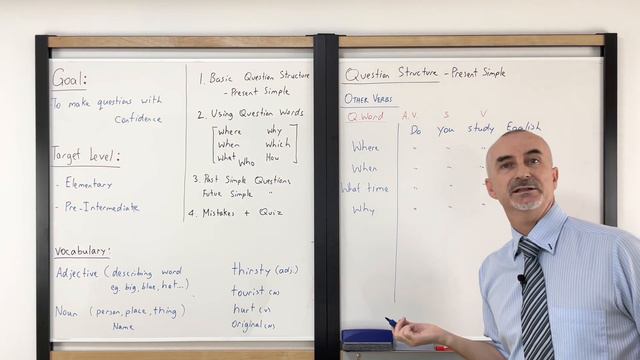 Goal:
To make questions with
Confidence
Target Level:
- Elementary
- Pre-Intermediate
1. Basic Question Structure
- Present Simple
2. Using Question Words
Where Why
When Which
What Who How
3. Past Simple Questions
Future Simple "
4. Mistakes + Quiz
Vocabulary:
Adjective (describing word
eg: big, blue, hot...)
Noun (person, place, thing)
Name
thirsty (adj.)
tourist (n)
hurt (v)
original (n)
Question Structure - Present Simple
Other Verbs
Q. Word A.V. S V
Do you study English
Where " " "
When " " "
What time " " "
Why " " "